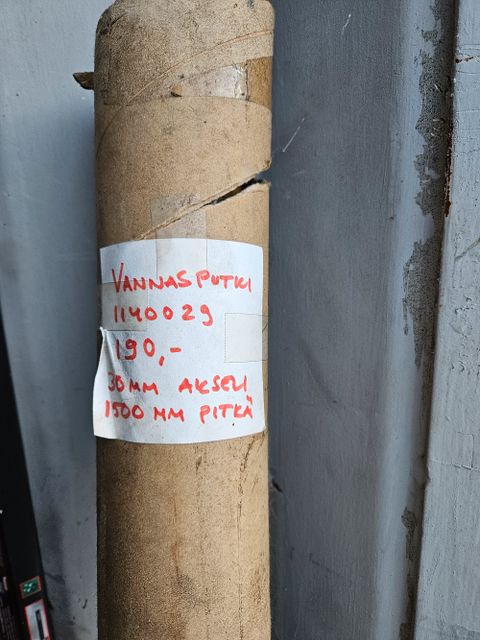 VANNASPUTKI
1140029
190,-
30 MM AKSELI
1500 MM PITKÄ